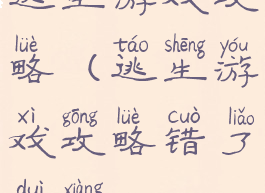 lüè táo shēng yóu
略（逃生游
xì gōng lüè cuò liǎo
戏攻略错了
duì xiàng